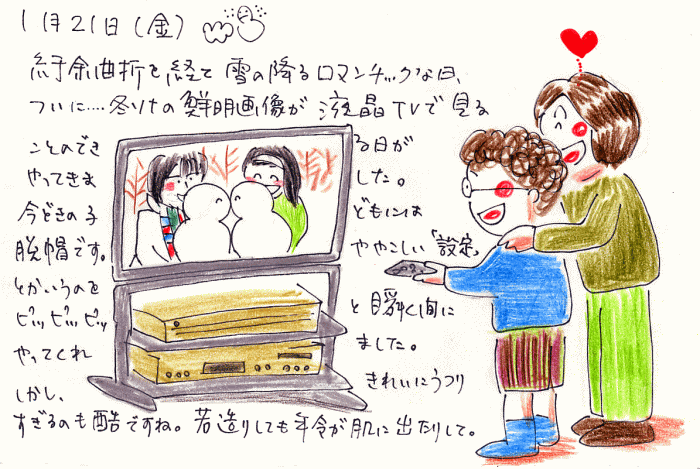 1月21日(金)
紆余曲折を経て 雪の降るロマンチックな日、
ついに‥‥冬ソナの鮮明画像が 液晶TVで見る
ことのでき る日が
やってきま した。
今どきの子 どもには
脱帽です。 ややこしい「設定」
とかいうのを
ピッピッピッ と瞬く間に
やってくれ ました。
しかし、 きれいにうつり
すぎるのも酷ですね。若造りしても年令が肌に出たりして。